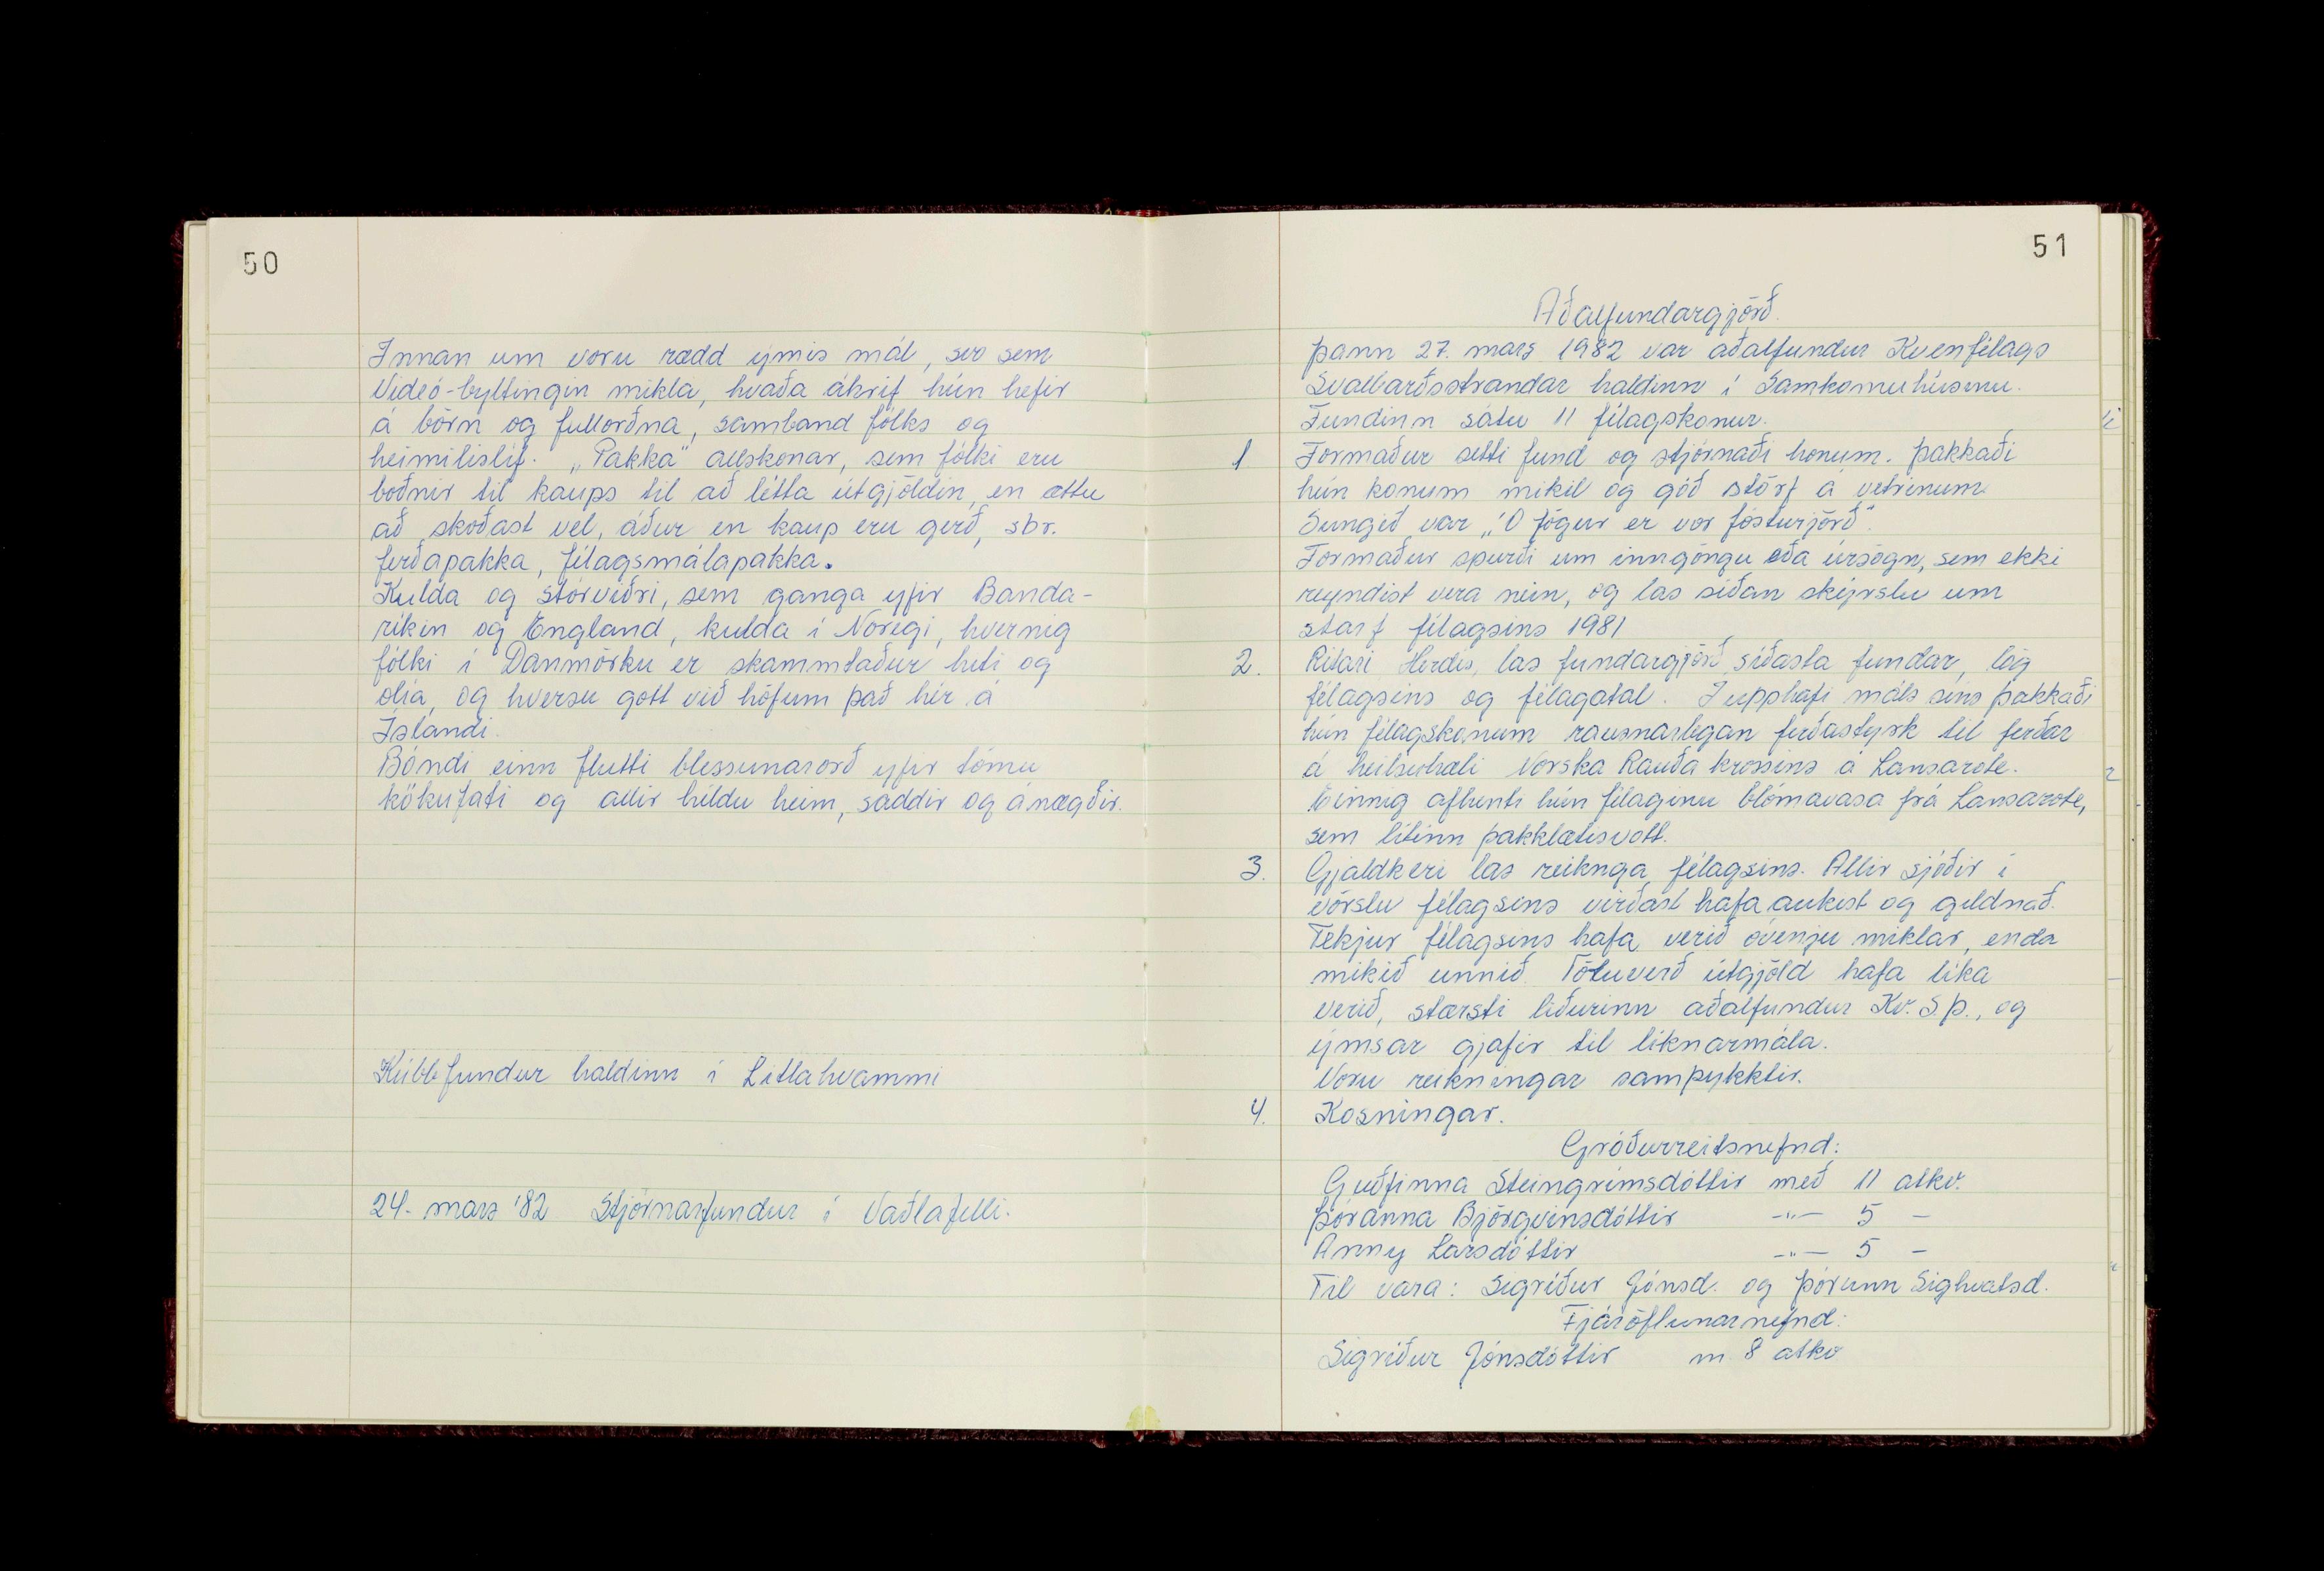 50
Innan um voru rædd ýmis mál, svo sem
Videó-byltingin mikla, hvaða áhrif hún hefir
á börn og fullorðna, samband fólks og
heimilislíf. „Pakka" allskonar, sem fólki eru
boðnir til kaups til að létta útgjöldin, en ættu
að skoðast vel, áður en kaup eru gerð, sbr.
ferðapakka, félagsmálapakka.
Kulda og stórviðri, sem ganga yfir Banda-
ríkin og England, kulda í Noregi, hvernig
fólki í Danmörku er skammtaður hiti og
olía, og hversu gott við höfum það hér á
Íslandi.
Bóndi einn flutti blessunarorð yfir tómu
kökufati og allir héldu heim, saddir og ánægðir.
Klúbbfundur haldinn í Litlahvammi
24. mars '82 Stjórnarfundur í Vaðlafelli.
51
Aðalfundargjörð.
Þann 27. mars 1982 var aðalfundur Kvenfélags
Svalbarðsstrandar haldinn í Samkomuhúsinu.
Fundinn sátu 11 félagskonur.
1 Formaður setti fund og stjórnaði honum. Þakkaði
hún konum mikil og góð störf á vetrinum.
Sungið var „Ó fögur er vor fósturjörð".
Formaður spurði um inngöngu eða úrsögn, sem ekki
reyndist vera nein, og las síðan skýrslu um
starf félagsins 1981
2. Ritari Herdís, las fundargjörð síðasta fundar, lög
félagsins og félagatal. Í upphafi máls síns þakkaði
hún félagskonum rausnarlegan ferðastyrk til ferðar
á heilsuhæli Norska Rauða krossins á Lansarote.
Einnig afhenti hún félaginu blómavasa frá Lansarote,
sem lítinn þakklætisvott.
3. Gjaldkeri las reiknga félagsins. Allir sjóðir í
vörslu félagsins virðast hafa aukist og gildnað.
Tekjur félagsins hafa verið óvenju miklar, enda
mikið unnið. Töluverð útgjöld hafa líka
verið, stærsti liðurinn aðalfundur Kv. S.Þ., og
ýmsar gjafir til líknarmála.
Voru reikningar samþykktir.
4. Kosningar.
Gróðurreitsnefnd:
Guðfinna Steingrímsdóttir með 11 atkv.
Þóranna Björgvinsdóttir -"- 5 -
Anny Larsdóttir -"- 5 -
Til vara: Sigríður Jónsd. og Þórunn Sighvatsd.
Fjáröflunarnefnd:
Sigríður Jónsdóttir m 8 atkv